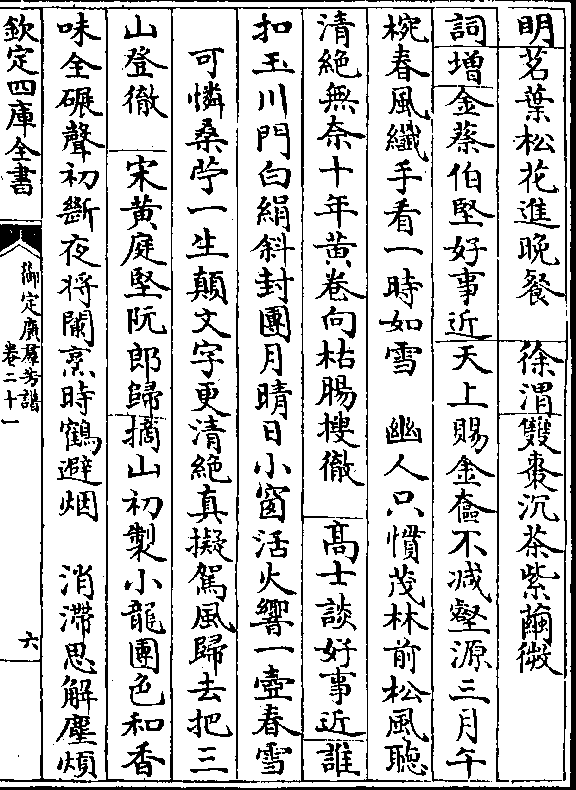 明茗葉松花進晚餐　徐渭雙棗沉茶紫繭微
詞增金蔡伯堅好事近天上賜金奩不減壑源三月午
椀春風纖手看一時如雪　幽人只慣茂林前松風聽
清絶無奈十年黃卷向枯腸搜徹　髙士談好事近誰
扣玉川門白絹斜封團月晴日小窗活火響一壺春雪
可憐桑苧一生顛文字更清絶真擬駕風歸去把三
山登徹　宋黃庭堅阮郎歸摘山初製小龍團色和香
味全碾聲初斷夜將闌烹時鶴避烟　消滯思解塵煩
欽定四庫全書
御定廣羣芳譜
卷二十一
六